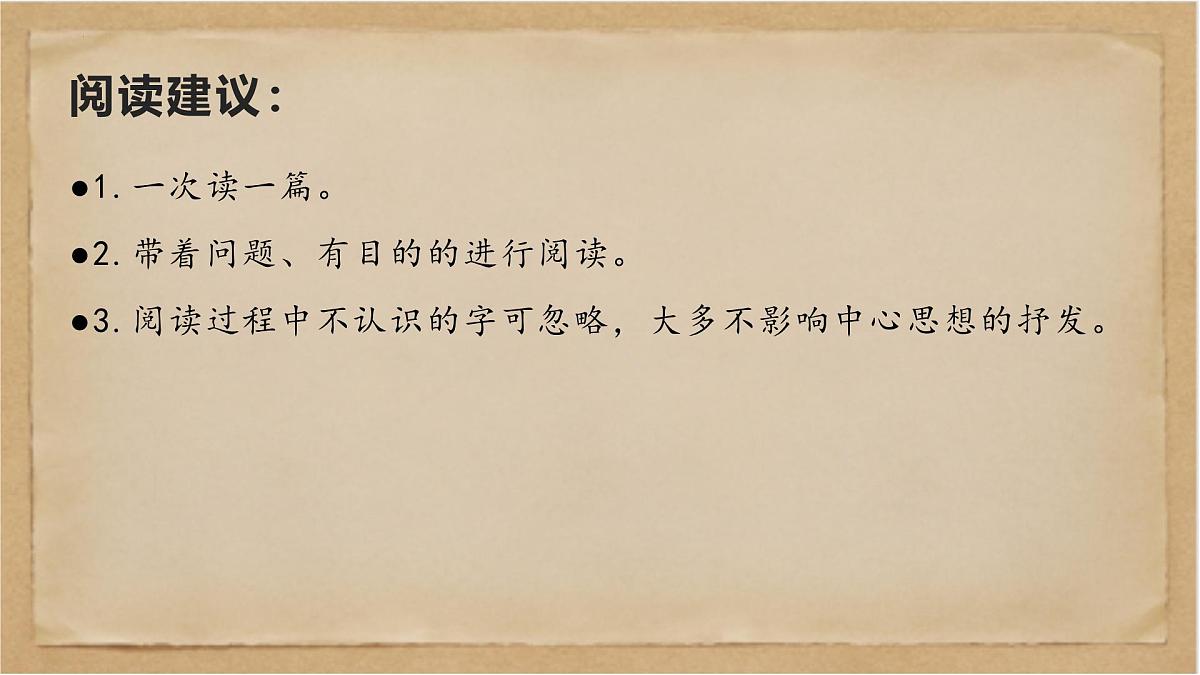 阅读建议：
●1.一次读一篇。
●2.带着问题、有目的的进行阅读。
●3.阅读过程中不认识的字可忽略，大多不影响中心思想的抒发。